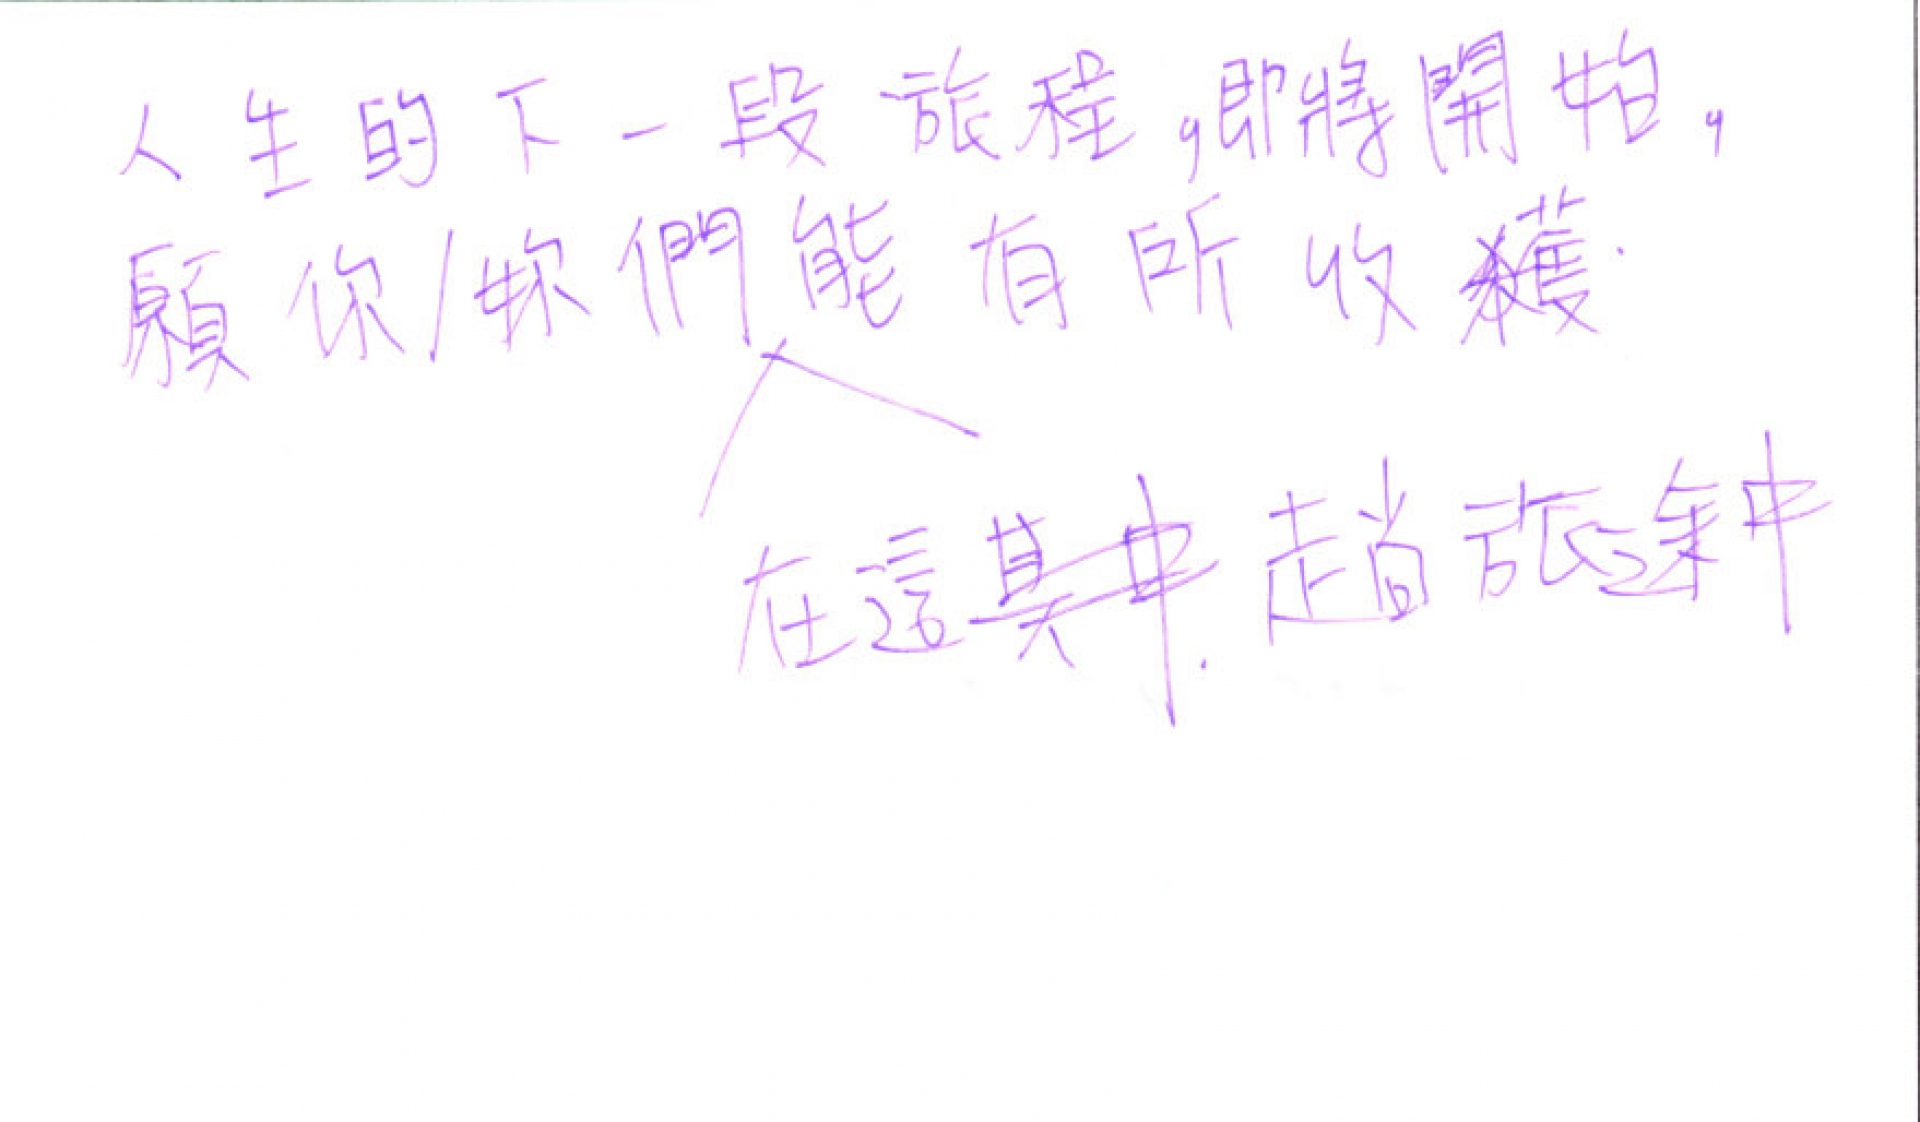 人生的下一段旅程,即將開始,
願你/妳們能有所收獲.
在這其中.趟旅途中